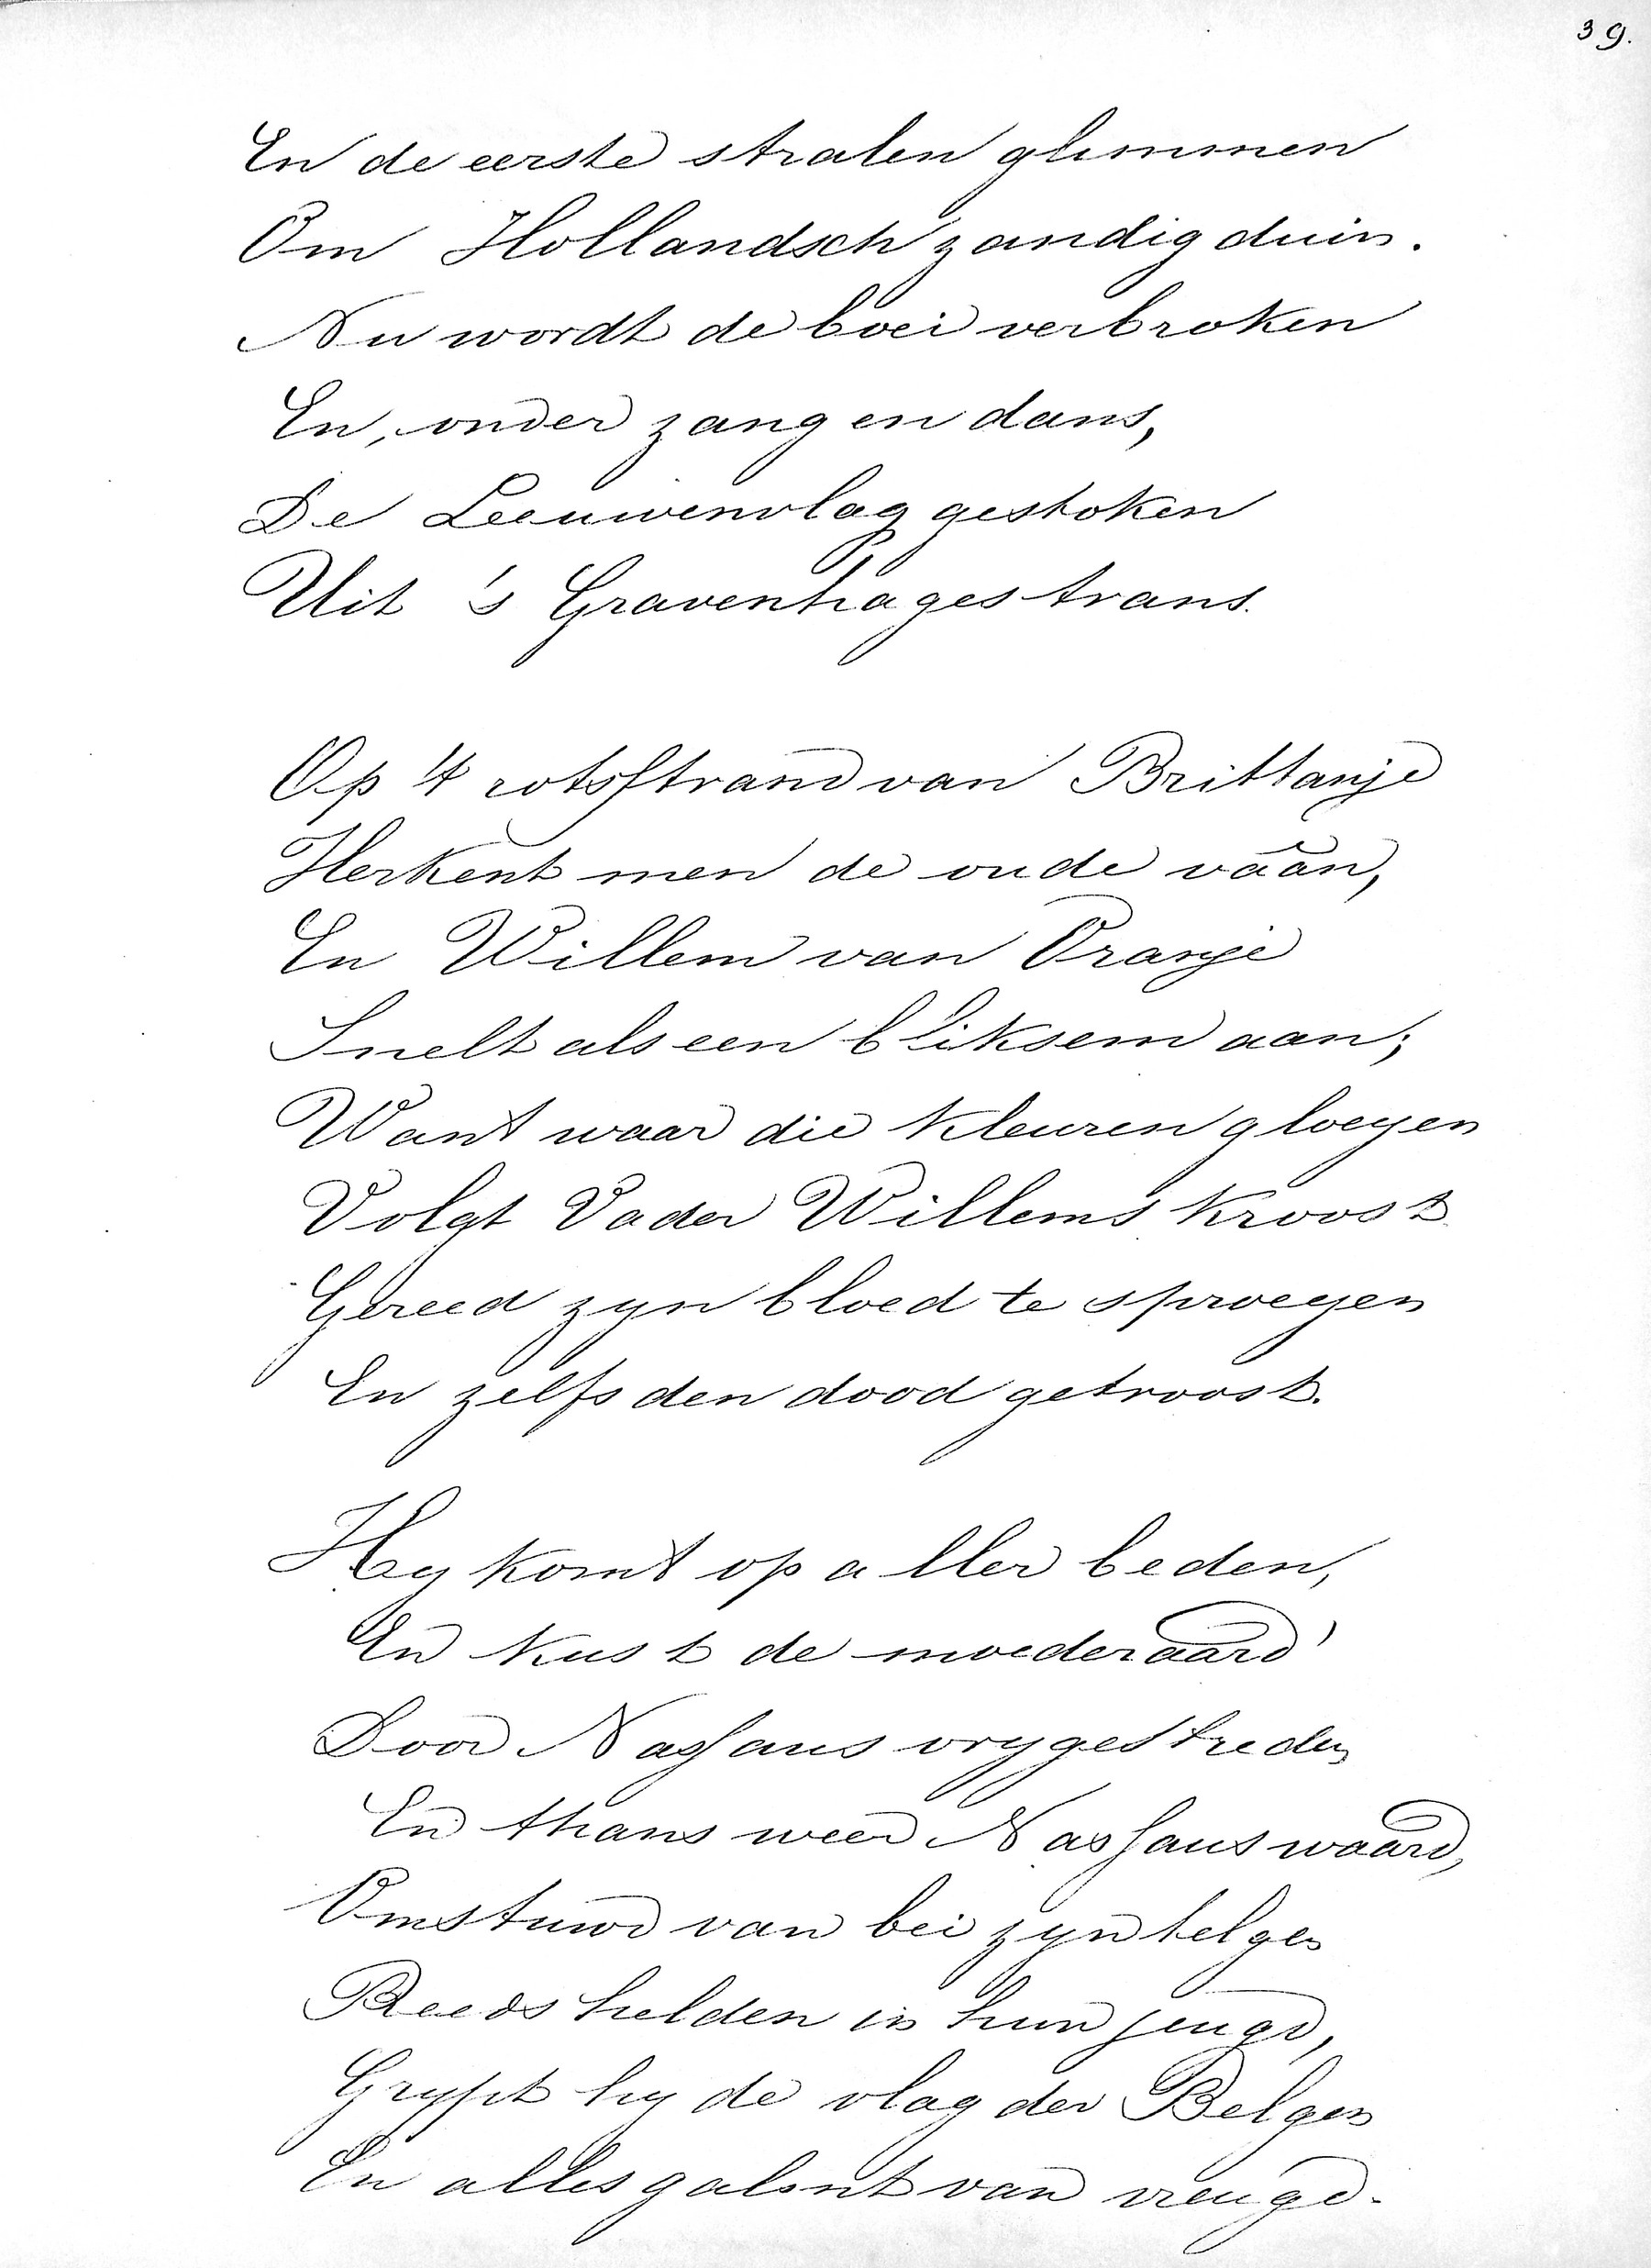 39.
En de eerste stralen glimmen
Om Hollandsch zandig duin.
Nu wordt de boei verbroken
En, onder zang en dans,
De Leeuwenvlag gestoken
Uit 's Gravenhages trans.
Op 't rotsstrand van Brittanje
Herkent men de oude vaan,
En Willem van Oranje
Snelt als een bliksem aan;
Want waar die kleuren gloeyen
Volgt Vader Willems kroost
Gereed zyn bloed te sproeyen
En zelfs den dood getroost.
Hy komt op aller beden,
En kust de moederaard'
Door Nassaus vrygestreden
En thans weer Nassaus waard,
Omstuwd van bei zyn telgen
Reeds helden in hun jeugd,
Grypt hy de vlag der Belgen
En alles galmt van vreugd.